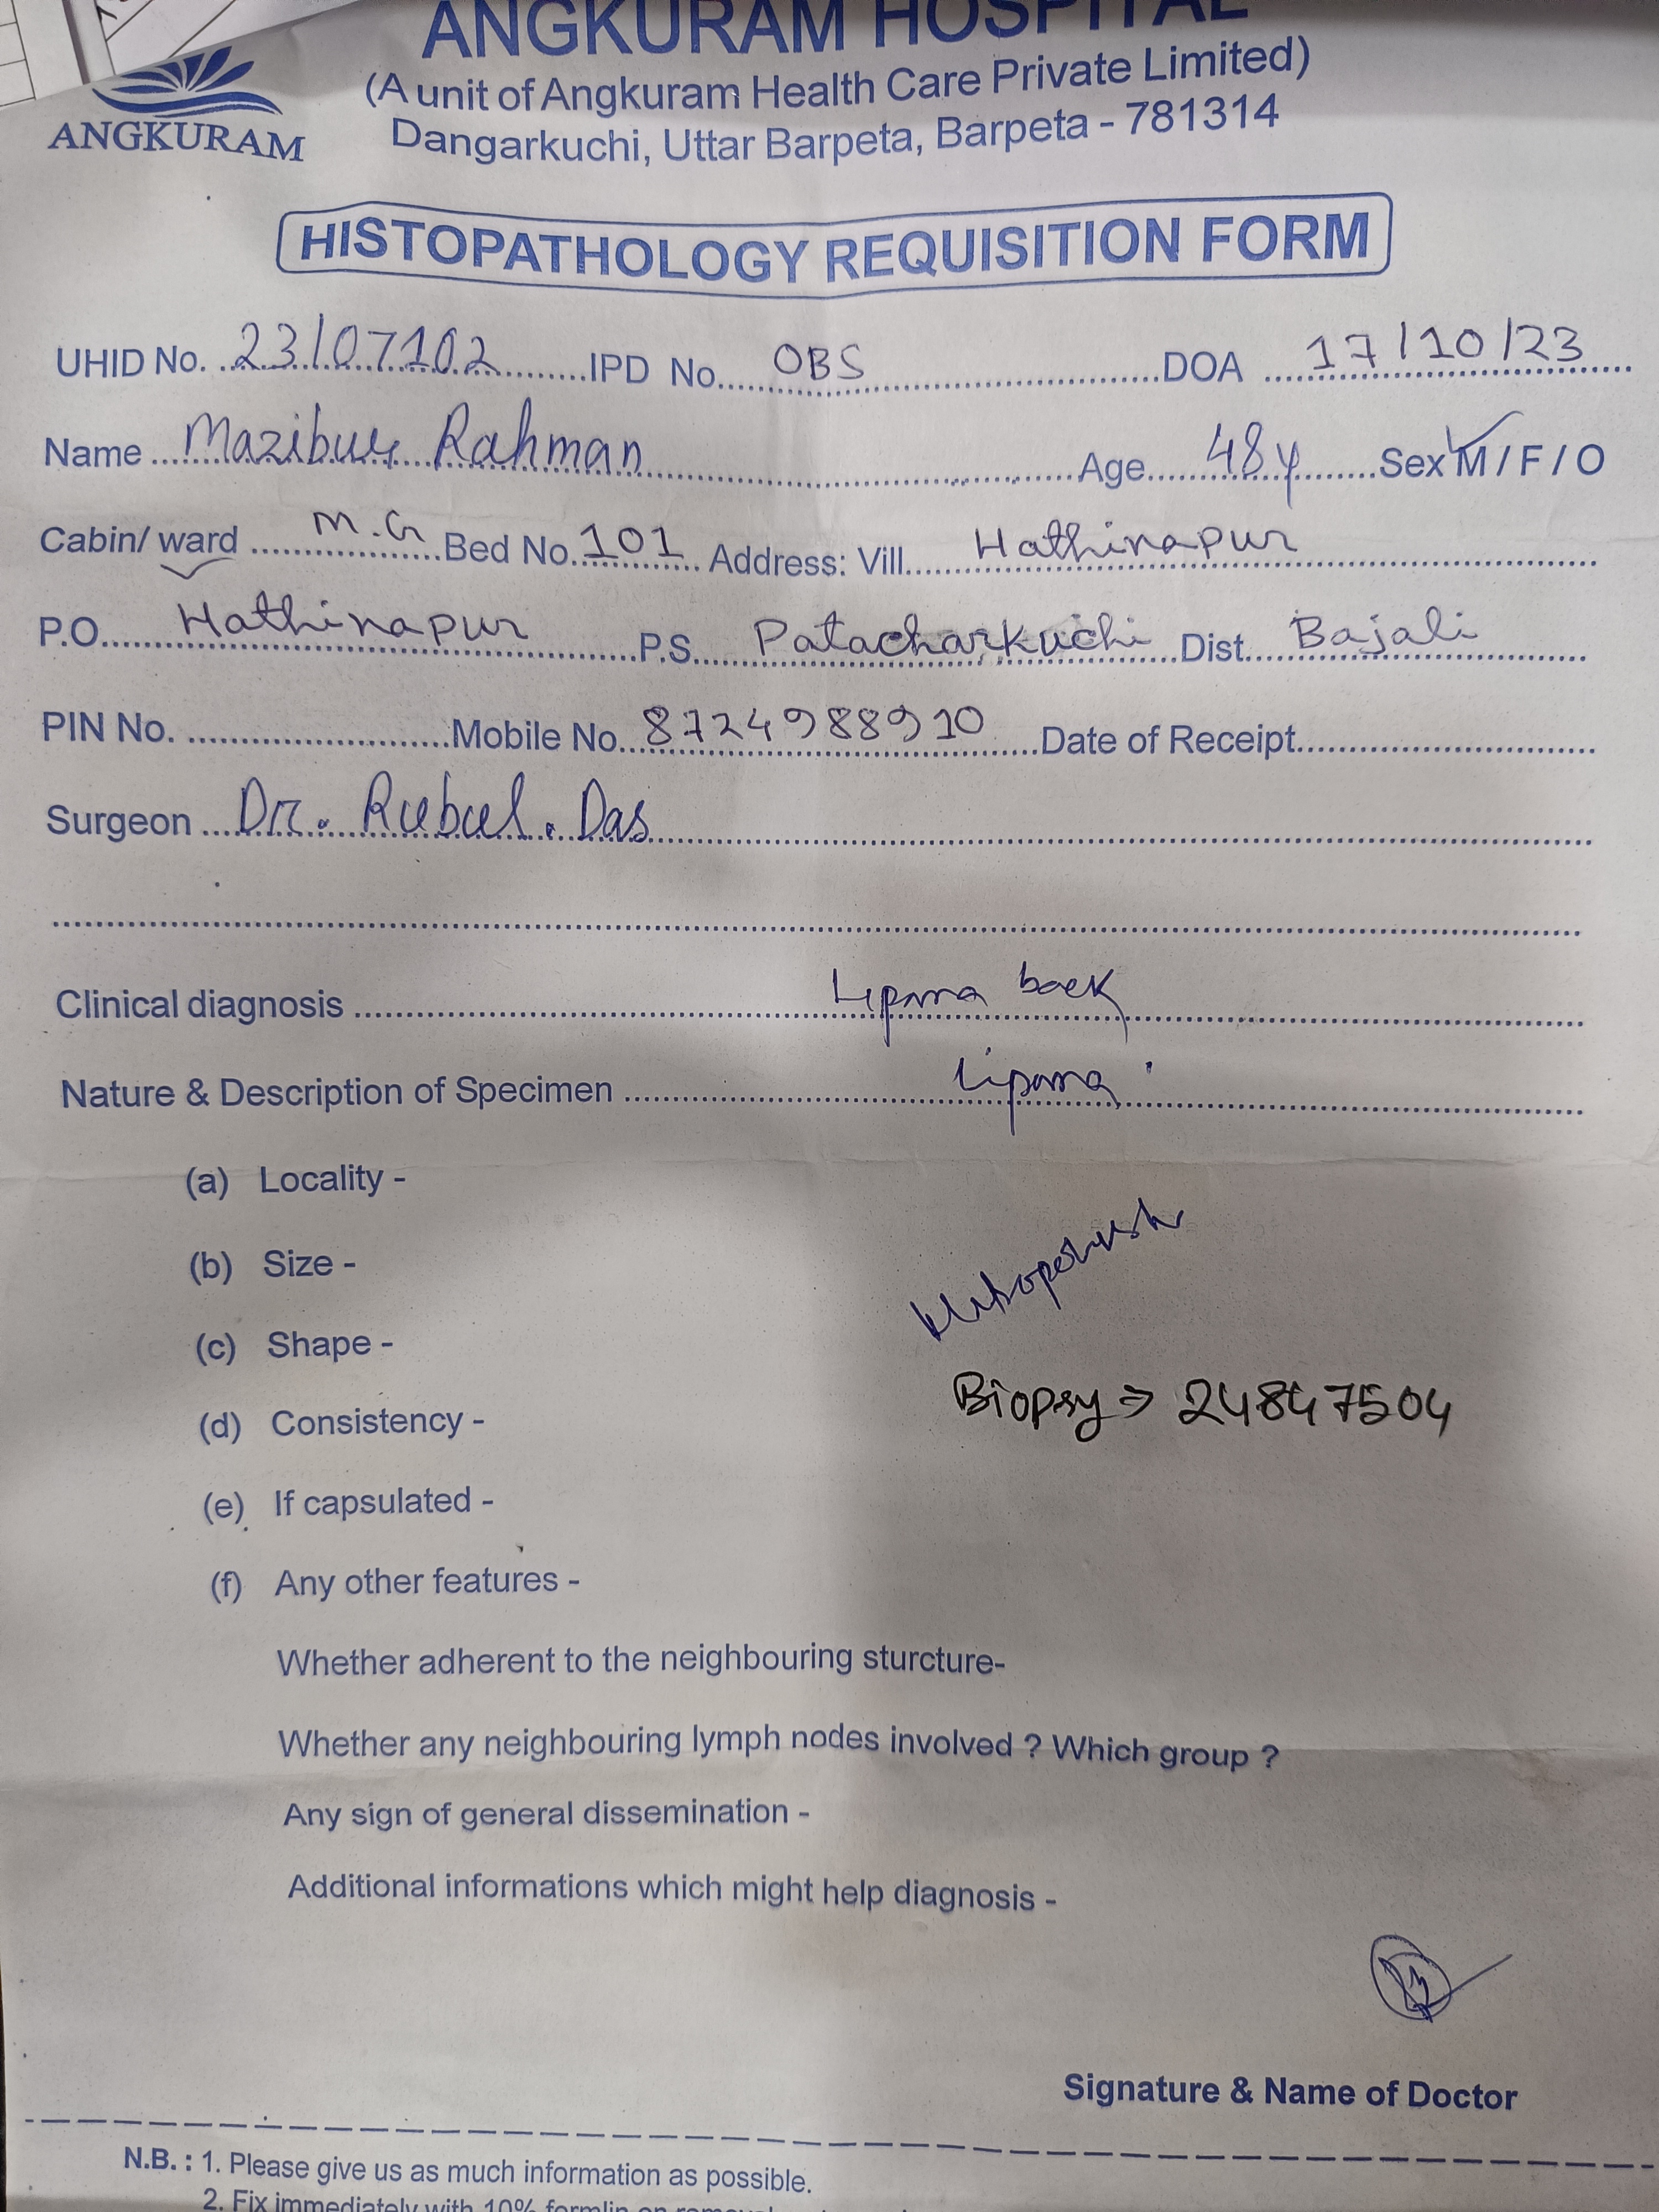 ANGKURAM HOSPITAL
ANGKURAM
(A unit of Angkuram Health Care Private Limited)
Dangarkuchi, Uttar Barpeta, Barpeta - 781314
HISTOPATHOLOGY REQUISITION FORM
UHID No. 23/07102 IPD No. OBS DOA 17/10/23
Name Mazibur Rahman Age 48y Sex M / F / O
Cabin/ ward M.G Bed No. 101 Address: Vill. Hathinapur
P.O. Hathinapur P.S. Patacharkuchi Dist. Bajali
PIN No. Mobile No. 8724988910 Date of Receipt
Surgeon Dr. Rubul. Das
Clinical diagnosis Lipoma back
Nature & Description of Specimen Lipoma
(a) Locality -
(b) Size -
(c) Shape -
Biopsy ⇒ 24847504
(d) Consistency -
(e) If capsulated -
(f) Any other features -
Whether adherent to the neighbouring sturcture-
Whether any neighbouring lymph nodes involved ? Which group ?
Any sign of general dissemination -
Additional informations which might help diagnosis -
Signature & Name of Doctor
N.B. : 1. Please give us as much information as possible.
2. Fix immediately with 10% formlin on